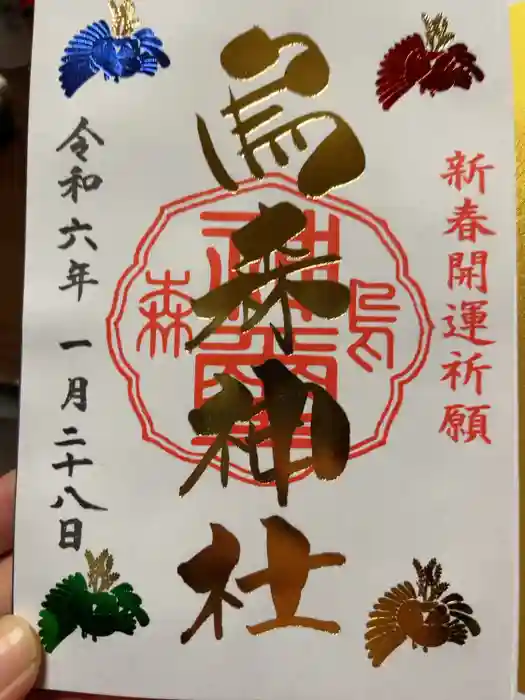 新春開運祈願
烏森神社
烏
森
令和六年 一月二十八日